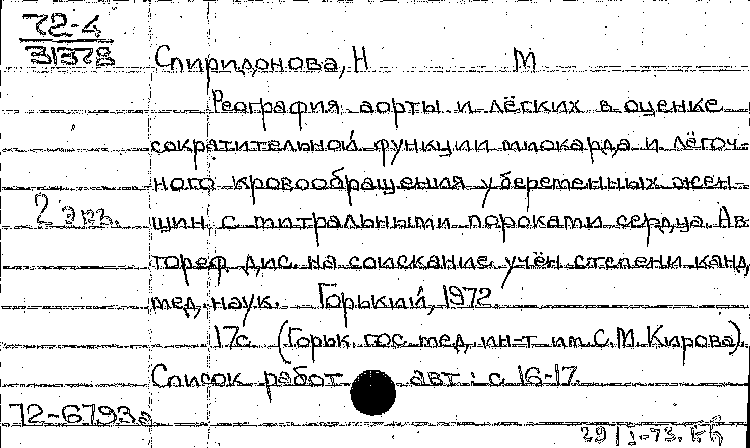 72-4
31378
Спиридонова, Н М
Реография аорты и лёгких в оценке
сократительной функции миокарда и лёгоч-
ного кровообращения у беременных жен-
2 экз.
щин с митральными пороками сердца. Ав
тореф дис. на соискание учён степени канд
мед. наук. Горький, 1972.
17с (Горьк. гос. мед. ин-т им. С.М. Кирова).
Список работ авт: с 16-17.
72-6793а
29/I-73.